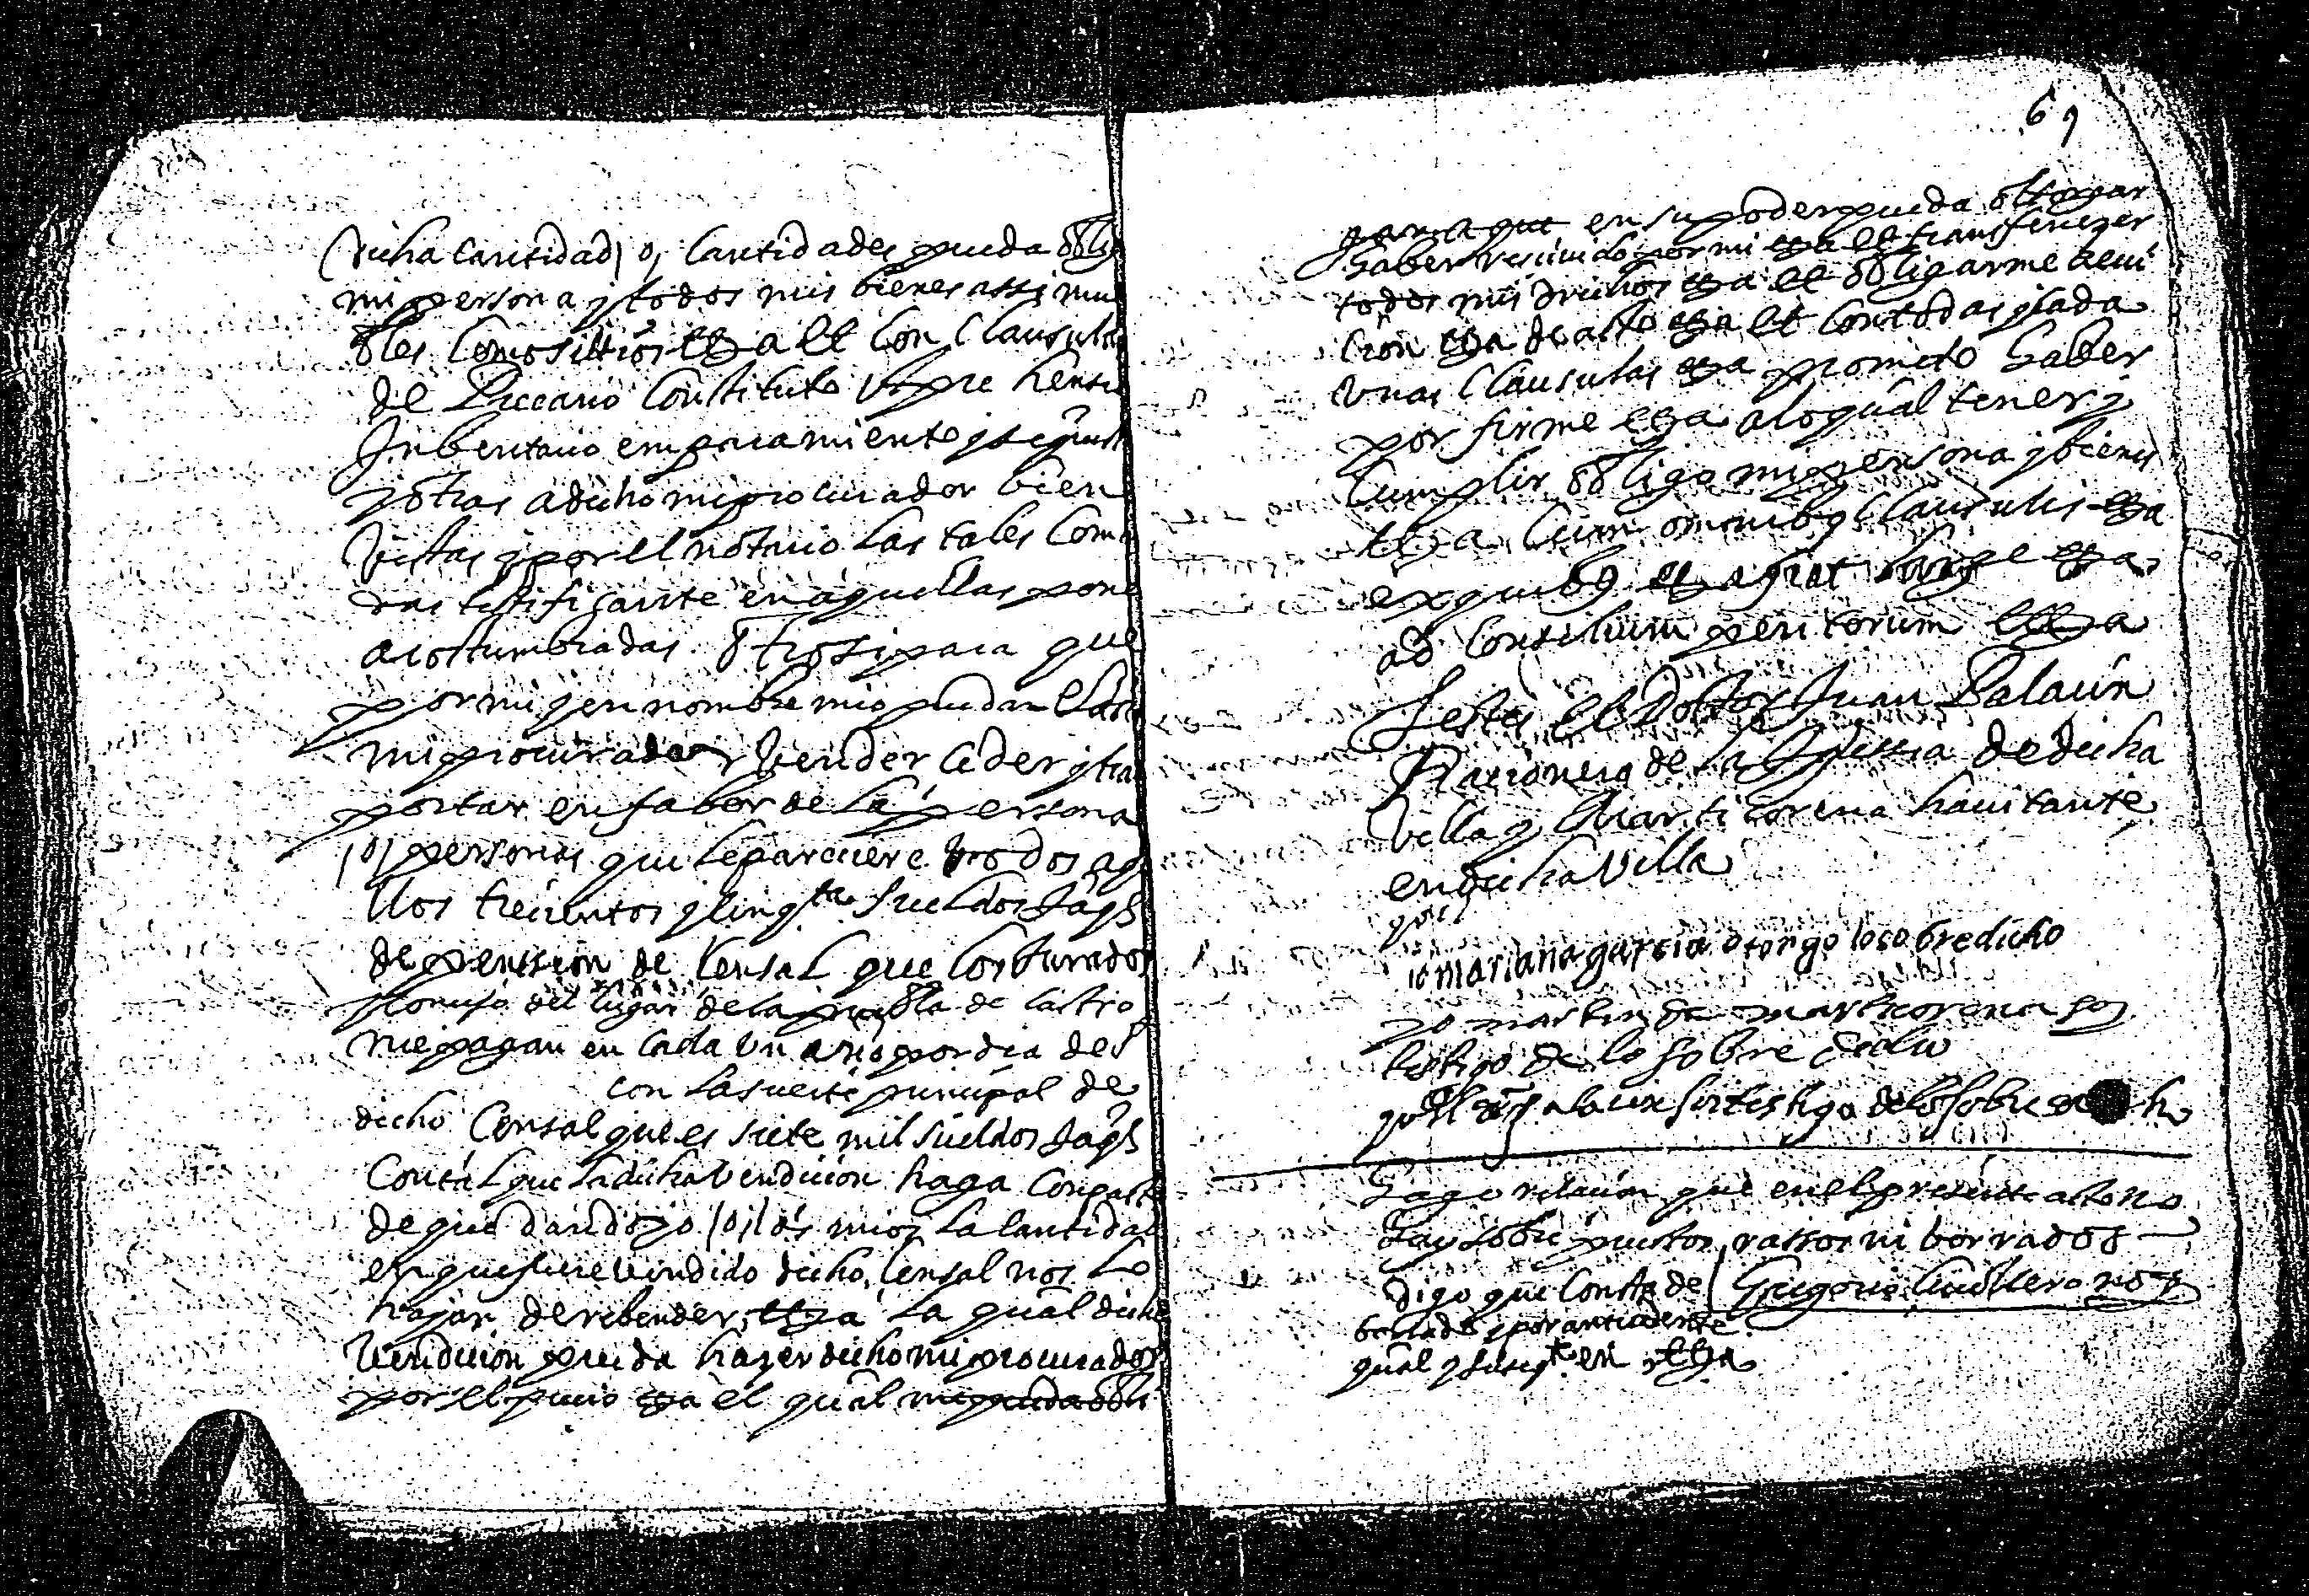 dicha cantidad, o, cantidades pueda oblig
mi persona y todos mis bienes assi mue
bles como sittios etza et con clausulas
de Precario Constituto Apre hensi
Inbentario emparamiento y sequest
y otras a dicho mi procurador bien
vistas y por el notario las tales coman
das testificante en aquellas poner
acostumbradas. Otrosi para que
por mi y en nombre mio pueda el dicho
mi procurador vender ceder y tras
portar en fabor de la persona
,o, personas que le pareciere todos aq
llos trecientos y cinqta sueldos Jaqs
de penssion de censal que los Jurados
y Concejo del lugar de la puebla de Castro
me pagan en cada un año por dia de
con la suerte principal de
dicho Censal que es siete mil sueldos Jaqs
Con tal que la dicha vendicion haga con pacto
de que dando yo ,o, los mios la cantidad
en que fuere vendido dicho censal nos lo
hajan de rebender, etza la qual dicha
Vendicion pueda hazer dicho mi procurador
por el precio etza el qual me pueda obli
69
para que en su poder pueda ottorgar
haber recivido por mi etza et transferezer
todos mis drechos etza et obligarme a evi
cion etza de acto etza et con todas y cada
unas Clausulas etza prometo haber
por firme etza a lo qual tener y
Cumplir obligo mi persona y bienes
etza Cum omnibq Clausulis etza
ex quibq etza fiat large etza
ad Consilium peritorum etza
Testes el Doctor Juan Palacin
Racionero de la Iglessia de dicha
Villa y Marticorena havitante
en dicha Villa
io mariana garcia otorgo lo sobredicho
yo martin de marticorena soy
testigo de lo sobre dicho
yo el Palacin soi testigo de lo sobre dicho
Hago relacion que en el presente acto no
hay sobre puestos, rassos ni borrados
digo que Consta de Gregorio Cudillero noto
borrado, por antecedente
qual y susiqte en etza